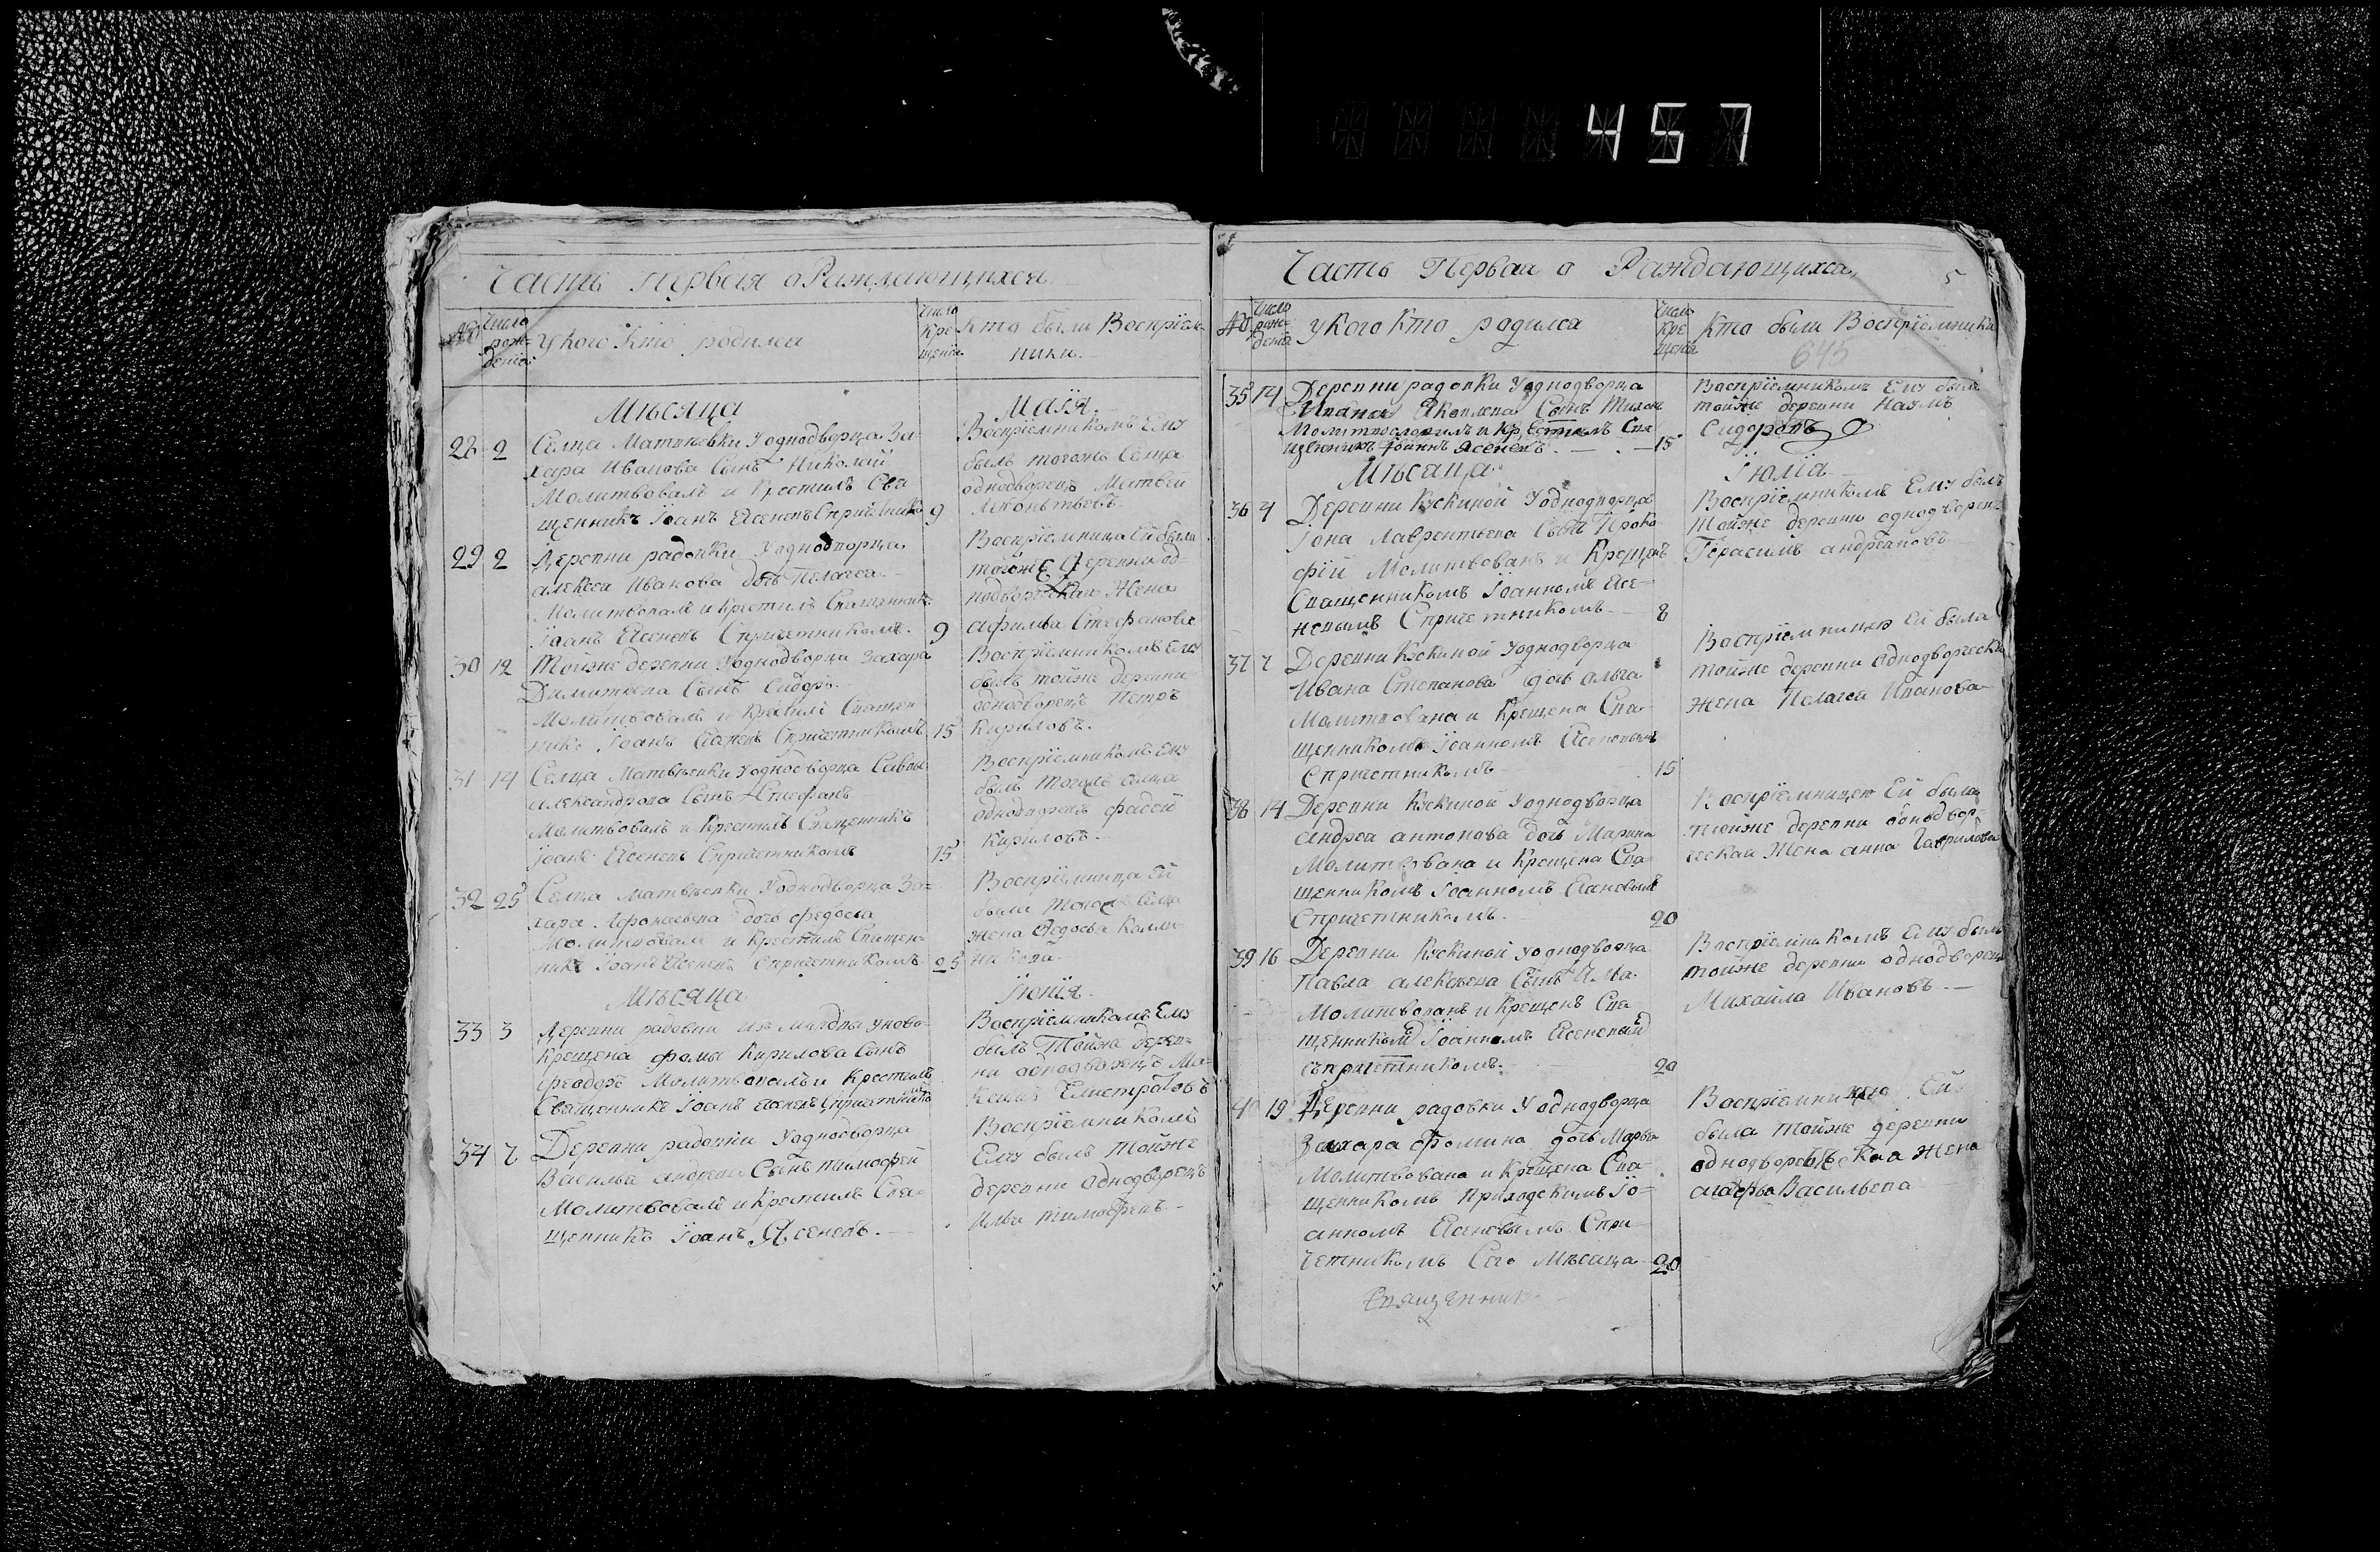 457
Часть первая о Раждающихся
№
Число рож-дения
У кого кто родился
Число кре-щения
Кто были Воспрiем-
ники.
Мѣсяца Маiя.
28 2 Селца Матвѣевки У однодворца За-
хара Иванова Сынъ Николай
Молитвовалъ и Крестилъ Свя
щенникъ Iоанъ Ясеневъ Спричетникомъ 9
Воспрiемникомъ Ему
былъ тогожъ Селца
однодворецъ Матвей
Леоньтьевъ.
29 2 Деревни радовки У однодворца
алексея Иванова дочь Пелагея.
Молитвовалъ и Крестилъ Священникъ
Iоанъ Ясеневъ Спричетникомъ. 9
Воспрiемница Ей была
тойже Деревни од-
нодворческая Жена
Афимья Стефанова
30 12 Тойже деревни У однодворца Захара
Димитрева Сынъ Сидоръ.
Молитвовалъ и Крестилъ Священ
никъ Iоанъ Ясеневъ Спричетникомъ 15
Воспрiемникомъ Ему
былъ тойже деревни
однодворецъ Петръ
Кириловъ.
31 14 Селца Матвѣевки У однодворца Савы
александрова Сынъ Стефанъ
Молитвовалъ и Крестилъ Священникъ
Iоанъ Ясеневъ Спричетникомъ 15
Воспрiемникомъ Ему
былъ тогожъ селца
однодворецъ фадей
Кириловъ.
32 25 Селца Матвѣевки У однодворца За-
хара дочь федосья
Молитвовалъ и Крестилъ Священ-
никъ Iоанъ Ясеневъ Спричетникомъ 25
Воспрiемница Ей
была тогожъ Селца
жена Федосья Кали-
никова.
Мѣсяца Iюнiя.
33 3 Деревни радовки из мордвы У ново-
крещена фомы Кирилова Сынъ
феодоръ Молитвовалъ и Крестилъ
Священникъ Iоанъ Ясеневъ Спричетникомъ
Воспрiемникомъ Ему
былъ Тойже дерев-
ни однодворецъ Ма-
Елистратовъ
34 7 Деревни радовки У однодворца
Василья андреева Сынъ тимофей
Молитвовалъ и Крестилъ Свя-
щенникъ Iоанъ Ясеневъ.
Воспрiемникомъ
Ему былъ Тойже
деревни Однодворецъ
Илья тимофеевъ
Часть Первая о Раждающихся
5
№
Число рож-дения
У кого Кто родился
Число Кре щения
Кто были Воспрiемники
645
35 14 Деревни радовки У однодворца
Ивана Яковлева Сынъ Тихонъ
Молитвословилъ и Крестилъ Свя
щенникъ Iоаннъ Ясеневъ. 15
Воспрiемникомъ Ему былъ
тойже деревни Наумъ
Сидоровъ
Мѣсяца Iюлiя
36 4 Деревни Кускиной У однодворца
Iона Лаврентьева Сынъ Проко
фiй Молитвованъ и Крещенъ
Священникомъ Iоанномъ Ясе-
невымъ Спричетникомъ 8
Воспрiемникомъ Ему былъ
Тойже деревни однодворец-
Герасимъ андреановъ
37 7 Деревни Кускиной У однодворца
Ивана Степанова дочь ольга
Молитвована и Крещена Свя-
щенникомъ Iоанномъ Ясеневымъ
Спричетникомъ 15
Воспрiемницею Ей была
тойже деревни Однодворческая
жена Пелагея Иванова
38 14 Деревни Кускиной У однодворца
Андрея антонова дочь Марина
Молитвована и Крещена Свя-
щенникомъ Iоанномъ Ясеновымъ
Спричетникомъ. 20
Воспрiемницею Ей была
тойже деревни однодвор-
ческая Жена анна Гаврилова
39 16 Деревни Кускиной У однодворца
Павла алексѣева Сынъ Илья.
Молитвованъ и Крещенъ Свя-
щенникомъ Iоанномъ Ясеневымъ
съпричетникомъ. 20
Воспрiемникомъ Ему былъ
тойже деревни однодворецъ
Михайла Ивановъ.
40 19 Деревни радовки У однодворца
Захара Фомина дочь Марья
Молитвована и Крещена Свя-
щенникомъ Приходскимъ Iо-
анномъ Ясеновымъ Спри-
четникомъ Сего Мѣсяца 20
Воспрiемницею Ей
была Тойже деревни
однодворческая жена
Васильева
Священник